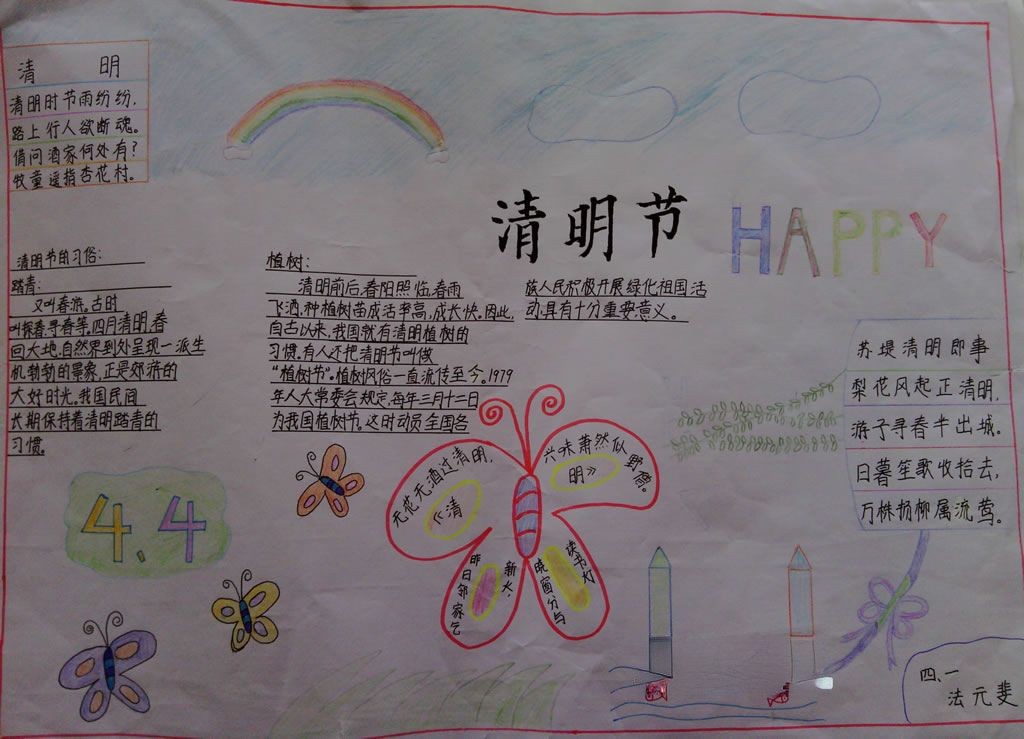 清 明
清明时节雨纷纷,
路上行人欲断魂。
借问酒家何处有?
牧童遥指杏花村。
清明节 HAPPY
清明节的习俗:
踏青:
又叫春游。古时
叫探春、寻春等。四月清明,春
回大地,自然界到处呈现一派生
机勃勃的景象,正是郊游的
大好时光。我国民间
长期保持着清明踏青的
习惯。
植树:
清明前后,春阳照临,春雨
飞洒,种植树苗成活率高,成长快。因此,
自古以来,我国就有清明植树的
习惯。有人还把清明节叫做
“植树节”。植树风俗一直流传至今。1979
年人大常委会规定,每年三月十二日
为我国植树节。这对动员全国各
族人民积极开展绿化祖国活
动,具有十分重要意义。
苏堤清明即事
梨花风起正清明,
游子寻春半出城。
日暮笙歌收拾去,
万株杨柳属流莺。
4.4
《清
明》
无花无酒过清明,
兴味萧然似野僧。
昨日邻家乞
新火,
晓窗分与
读书灯
四、一
法元斐